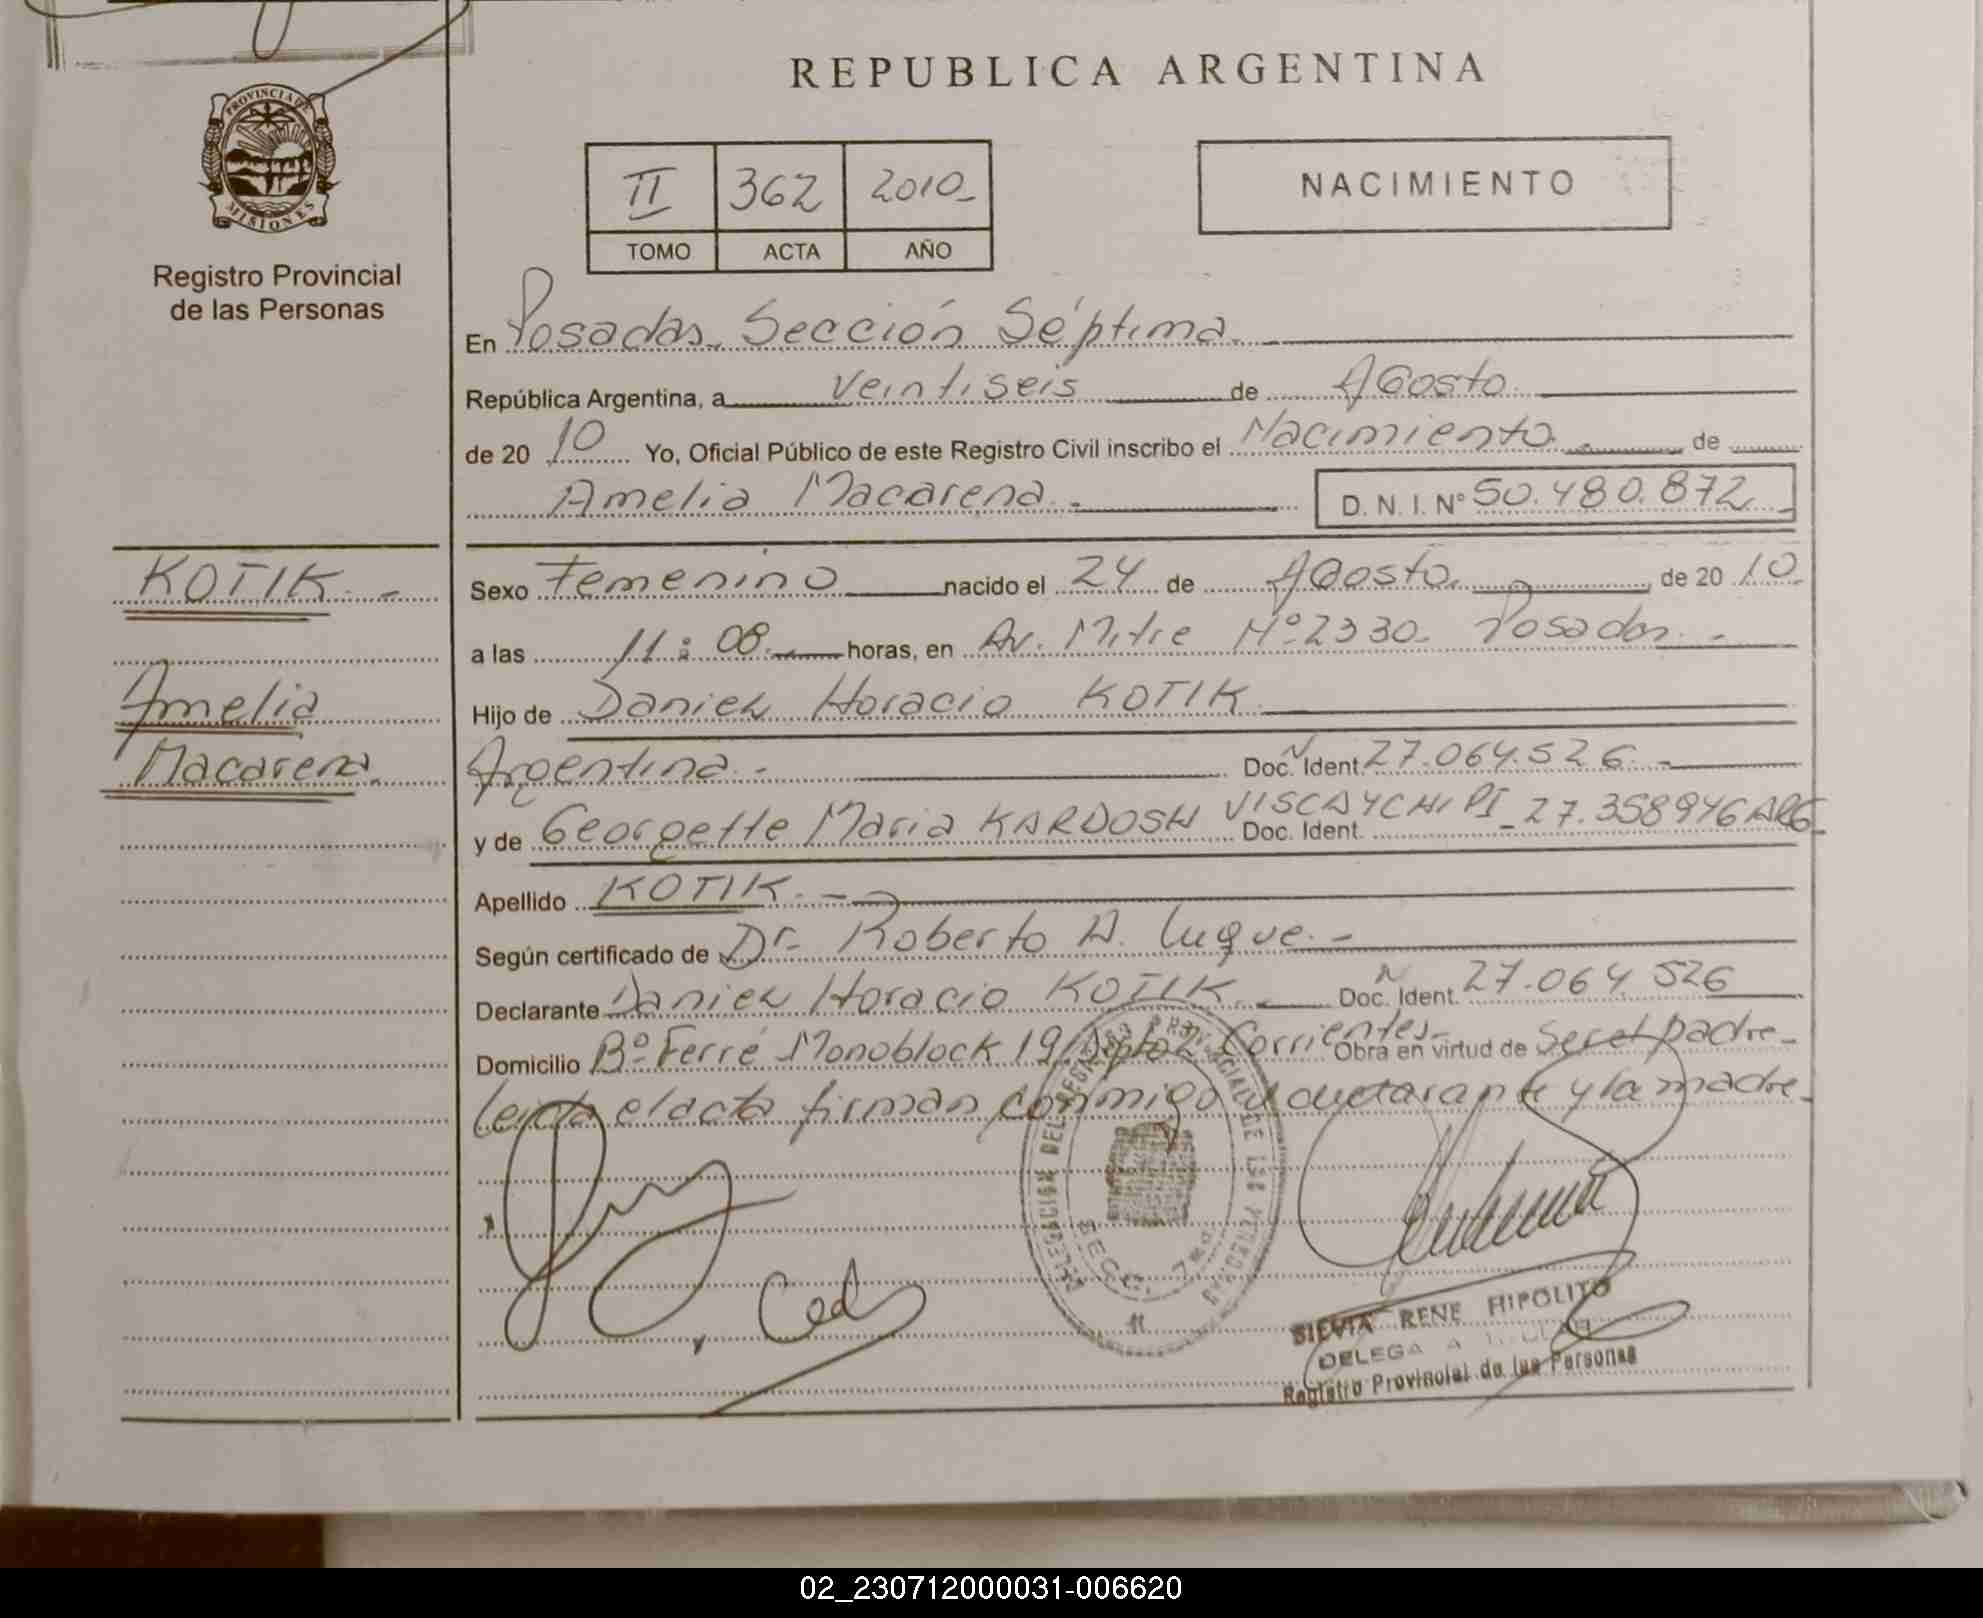 REPUBLICA ARGENTINA
PROVINCIA DE
MISIONES
Registro Provincial
de las Personas
II 362 2010
TOMO ACTA AÑO
NACIMIENTO
En Posadas. Sección Séptima.
República Argentina, a veintiseis de Agosto
de 20 10 Yo, Oficial Público de este Registro Civil inscribo el Nacimiento de
Amelia Macarena. D.N.I. Nº 50.480.872
KOTIK.-
Amelia
Macarena.
Sexo Femenino nacido el 24 de Agosto. de 20 10.
a las 11:08 horas, en Av. Mitre Nº 2330. Posadas.-
Hijo de Daniel Horacio KOTIK
Argentina.- Doc. Ident. 27.064.526.-
y de Georgette Maria KARDOSH VISCAYCHIPI Doc. Ident. 27.358946 ARG-
Apellido KOTIK.-
Según certificado de Dr. Roberto A. Luque.-
Declarante Daniel Horacio KOTIK.- Doc. Ident. 27.064 526
Domicilio Bº Ferré Monoblock 19 Corrientes- Obra en virtud de Ser el padre-
Leida el acta firman conmigo declarante y la madre-
DELEGACION DEL REGISTRO PROVINCIAL DE LAS PERSONAS
SECC. 7ma
SILVIA RENE HIPOLITO
DELEGA
Registro Provincial de las Personas
02_230712000031-006620